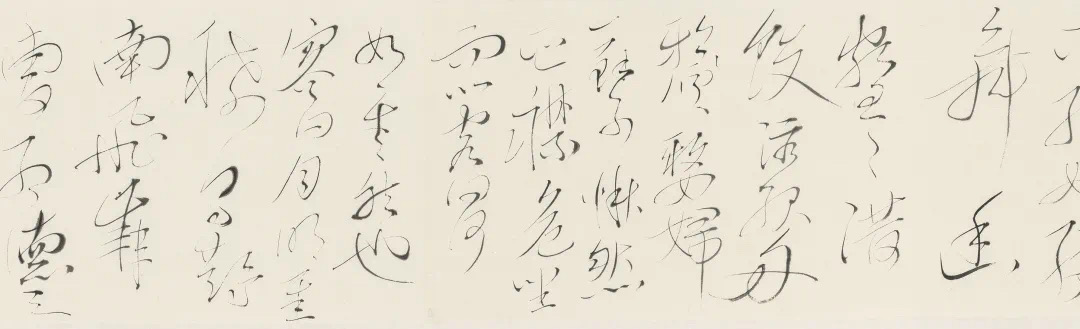 舞幽
壑之潛
蛟泣孤舟
嫠婦
蘇子愀然
正襟危坐
而問客曰何
為其然也
客曰月明星
稀烏鵲
南飛此非
曹孟德之